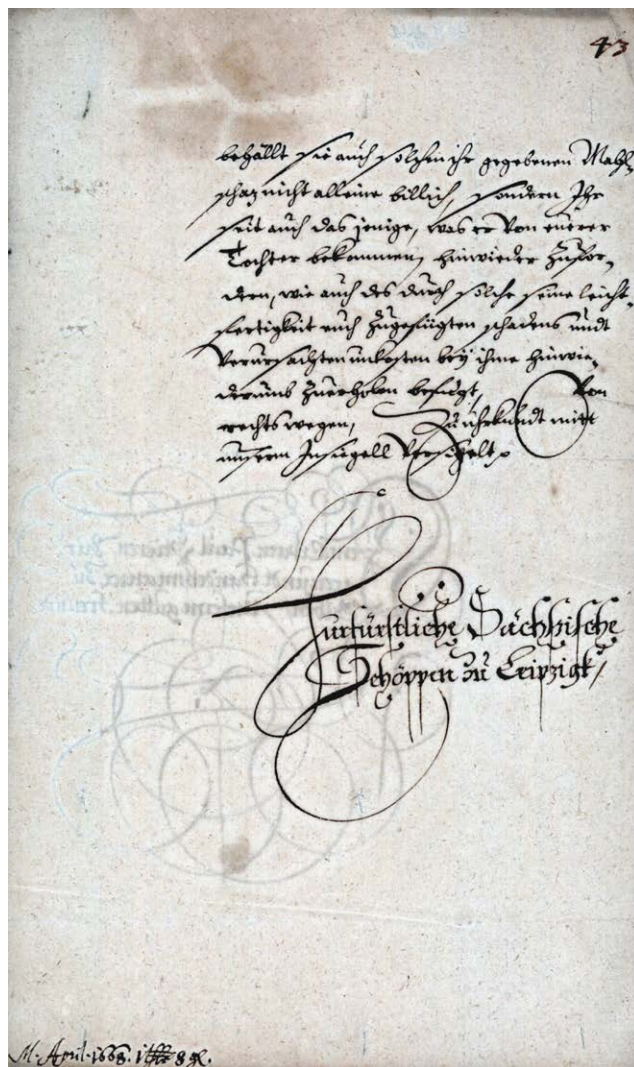 43
behällt sie auch solchen ihr gegebenen Mahl,
schaz nicht alleine billich, sondern Ihr
seit auch das jenige, was er von eüerer
Tochter bekommen, hinwieder zufor,
dern, wie auch des durch solche seine leicht,
fertigkeit euch zugefügten schadens undt
verursachten unkosten bey ihme hinwie,
derumb zuerholen befugt, Von
rechts wegen, Zu uhrkundt mitt
unserm Insiegell versiegelt
Curfürstliche Sächsische
Schöppen zu Leipzigk,
M. April. 1668. 8 gl.